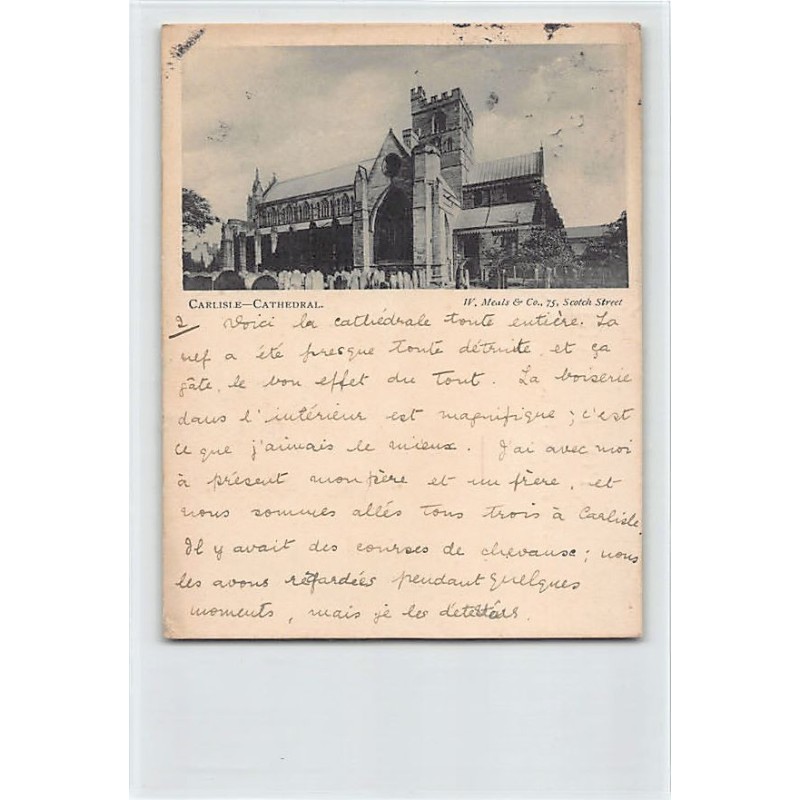 CARLISLE—CATHEDRAL.
W. Meals & Co., 75, Scotch Street
2 Voici la cathédrale toute entière. La
nef a été presque toute détruite, et ça
gâte, le bon effet du tout. La boiserie
dans l'intérieur est magnifique ; c'est
ce que j'aimais le mieux. J'ai avec moi
à présent mon père et un frère, et
nous sommes allés tous trois à Carlisle.
Il y avait des courses de chevause ; nous
les avons régardées pendant quelques
moments, mais je les